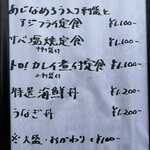 あじなめろう入り割醤と
アジフライ定食 ¥1.100-
サバ塩焼定食 ¥1.100-
小割醤付
トロカレイ煮付定食 ¥1.100-
小割醤付
特選海鮮丼 ¥1.200-
うなぎ丼 ¥1.200-
大盛・おかわり ¥100-